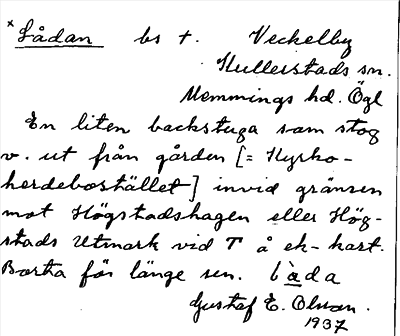 × Lådan bs †. Veckelby
Kullerstads sn.
Memmings hd. Ögl
En liten backstuga som stog
v. ut från gården [= Kyrko-
herdebostället] invid gränsen
mot Högstadshagen eller Hög-
stads Utmark vid T å ek-kart.
Borta för länge sen. làda
Gustaf E. Olsson.
1937